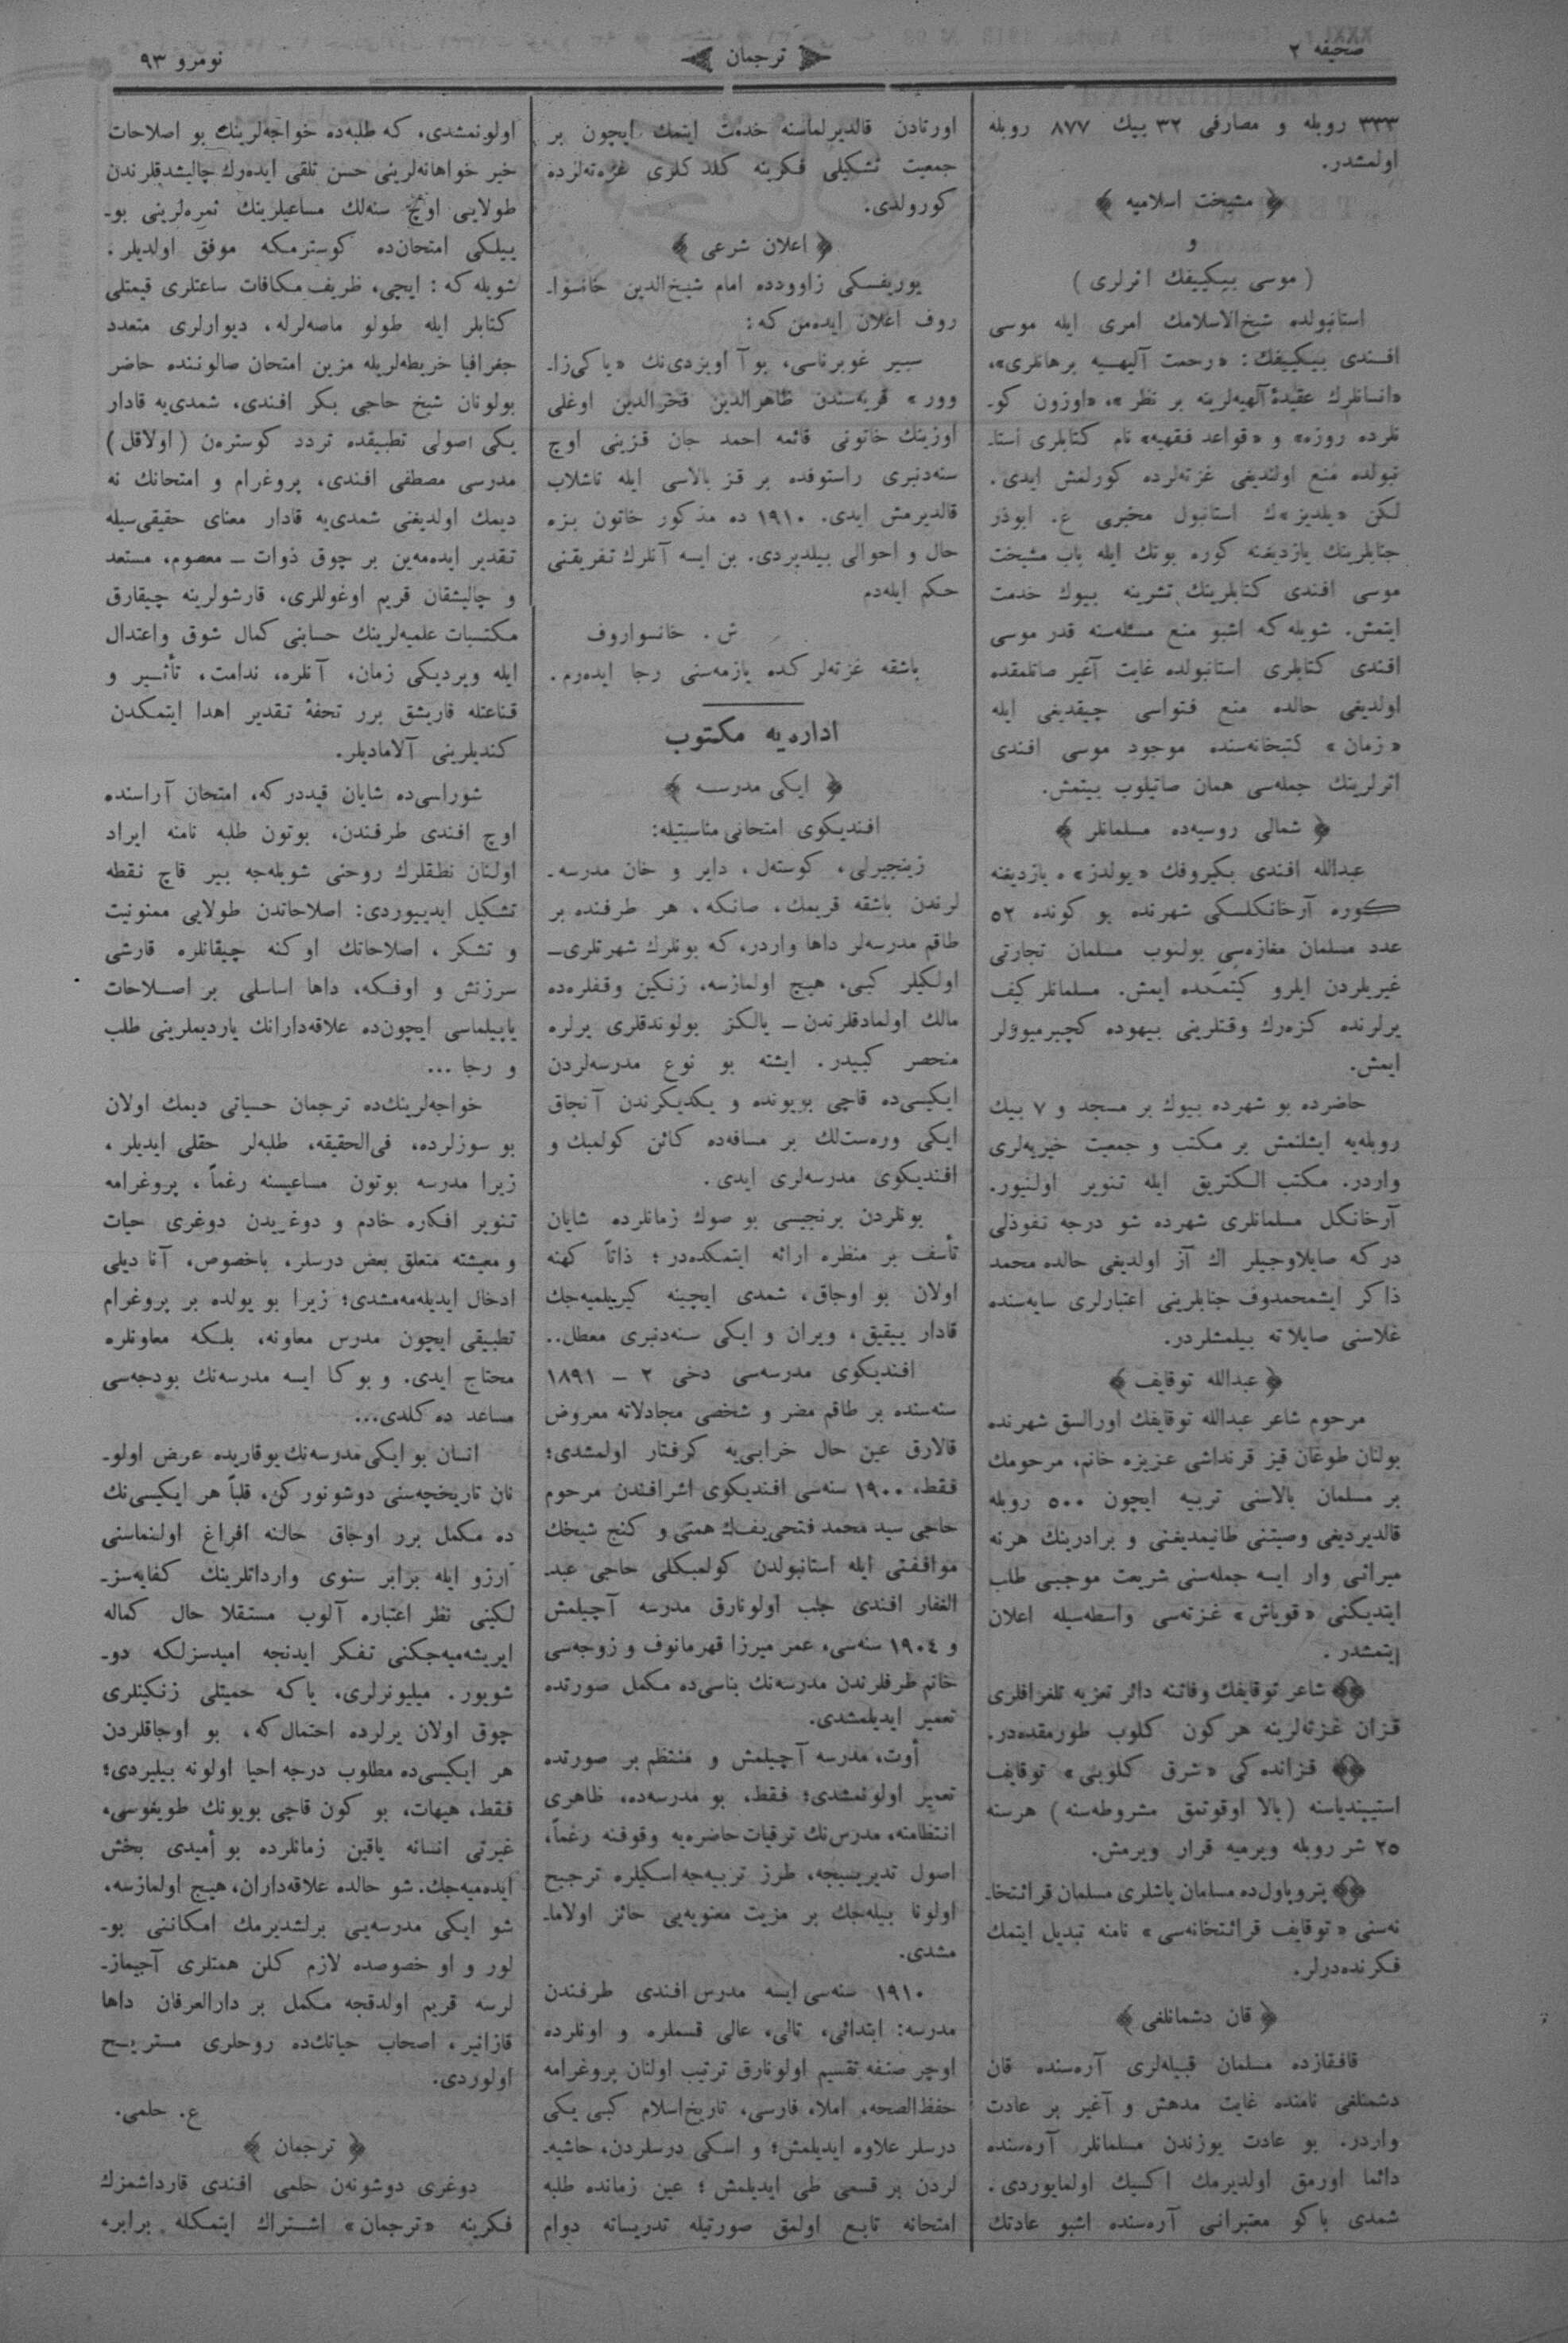 صحیفه ۲
ترجمان
نومرو ۹۳
۳۳۳ روبله و مصارفی ۳۲ بیك ۸۷۷ روبله
اولمشدر.
﴿ مشیخت اسلامیه ﴾
و
( موسی بیكییفك اثرلری )
استانبولده شیخ‌الاسلامك امری ایله موسی
افندی بیكییفك: «رحمت آلیهـیه برهانلری»،
«انسانلرك عقیدۀ آلهیه‌لرینه بر نظر»، «اوزون كو-
نلرده روزه» و «قواعد فقهیه» نام كتابلری استا-
نبولده منع اولندیغی غزته‌لرده كورلمش ایدی.
لكن «یلدیز»ك استانبول مخبری ع. ابوذر
جنابلرینك یازدیغنه كوره بونك ایله باب مشیخت
موسی افندی كتابلرینك نشرینه بیوك خدمت
ایتمش. شویله‌كه اشبو منع مسئله‌سنه قدر موسی
افندی كتابلری استانبولده غایت آغیر صاتلمقده
اولدیغی حالده منع فتواسی چیقدیغی ایله
«زمان» كتبخانه‌سنده موجود موسی افندی
اثرلرینك جمله‌سی همان صاتیلوب بیتمش.
﴿ شمالی روسیه‌ده مسلمانلر ﴾
عبدالله افندی بكیروفك «یولدز» ه یازدیغنه
كوره آرخانكلسكی شهرنده بو كونده ۵۲
عدد مسلمان مغازه‌سی بولنوب مسلمان تجارتی
غیریلردن ایلرو كیتمكده ایمش. مسلمانلر كیف
یرلرنده كزه‌رك وقتلرینی بیهوده كچیرمیوؤلر
ایمش.
حاضرده بو شهرده بیوك بر مسجد و ۷ بیك
روبله‌یه ایشلنمش بر مكتب و جمعیت خیریه‌لری
واردر. مكتب الكتریق ایله تنویر اولنیور.
آرخانكل مسلمانلری شهرده شو درجه نفوذلی
دركه صایلاوجیلر اك آز اولدیغی حالده محمد
ذاكر ایشمحمدوف جنابلرینی اعتبارلری سایه‌سنده
غلاسنی صایلاته بیلمشلردر.
﴿ عبدالله توقایف ﴾
مرحوم شاعر عبدالله توقایفك اورالسق شهرنده
بولنان طوغان قیز قرنداشی عزیزه خانم، مرحومك
بر مسلمان بالاسنی تربیه ایچون ۵۰۰ روبله
قالدیردیغی وصیتنی طانیمدیغنی و برادرینك هرنه
میراثی وار ایسه جمله‌سنی شریعت موجبی طلب
ایتدیكنی «قویاش» غزته‌سی واسطه‌سیله اعلان
ایتمشدر.
شاعر توقایفك وفاتنه دائر تعزیه تلغرافلری
قزان غزته‌لرینه هركون كلوب طورمقده‌در.
قزانده‌كی «شرق كلوبی» توقایف
استیپندیاسنه (بالا اوقوتمق مشروطه‌سنه) هرسنه
۲۵ شر روبله ویرمیه قرار ویرمش.
پتروپاول‌ده مسلمان یاشلری مسلمان قرائتخا-
نه‌سنی «توقایف قرائتخانه‌سی» نامنه تبدیل ایتمك
فكرنده‌درلر.
﴿ قان دشمانلغی ﴾
قافقازده مسلمان قبیله‌لری آره‌سنده قان
دشمنلغی نامنده غایت مدهش و آغیر بر عادت
واردر. بو عادت یوزندن مسلمانلر آره‌سنده
دائما اورمق اولدیرمك اكسیك اولمایوردی.
شمدی باكو معتبرانی آره‌سنده اشبو عادتك
اورتادن قالدیرلماسنه خدمت ایتمك ایچون بر
جمعیت تشكیلی فكرینه كلدكلری غزته‌لرده
كورولدی.
﴿ اعلان شرعی ﴾
یوریفسكی زاوودده امام شیخ‌الدین خانسوا-
روف اعلان ایده‌من‌كه:
سیبر غوبرناسی، بوآ اویزدی‌نك «یاكی‌زا-
وور» قریه‌سندن ظاهرالدین فخرالدین اوغلی
اوزینك خاتونی قائمه احمد جان قزینی اوچ
سنه‌دنبری راستوفده بر قز بالاسی ایله تاشلاب
قالدیرمش ایدی. ۱۹۱۰ ده مذكور خاتون بزه
حال و احوالی بیلدیردی. بن ایسه آنلرك تفریقنی
حكم ایله‌دم
ش. خانسواروف
باشقه غزته‌لركده یازمه‌سنی رجا ایده‌رم.
اداره‌یه مكتوب
﴿ ایكی مدرسه ﴾
افندیكوی امتحانی مناسبتیله:
زینجیرلی، كوسته‌ل، دایر و خان مدرسه-
لرندن باشقه قریمك، صانكه، هر طرفنده بر
طاقم مدرسه‌لر داها واردر، كه بونلرك شهرتلری-
اولكیلر كبی، هیچ اولمازسه، زنكین وقفلره‌ده
مالك اولمادقلرندن- یالكز بولوندقلری یرلره
منحصر كبیدر. ایشته بو نوع مدرسه‌لردن
ایكیسی‌ده قاچی بویونده و یكدیكرندن آنجاق
ایكی وره‌ست‌لك بر مسافه‌ده كائن كولمبك و
افندیكوی مدرسه‌لری ایدی.
بونلردن برنجیسی بو صوك زمانلرده شایان
تأسف بر منظره ارائه ایتمكده‌در؛ ذاتاً كهنه
اولان بو اوجاق، شمدی ایچینه كیریلمیه‌جك
قادار ییقیق، ویران و ایكی سنه‌دنبری معطل..
افندیكوی مدرسه‌سی دخی ۲ - ۱۸۹۱
سنه‌سنده بر طاقم مضر و شخصی مجادلاته معروض
قالارق عین حال خرابی‌یه كرفتار اولمشدی؛
فقط، ۱۹۰۰ سنه‌سی افندیكوی اشرافندن مرحوم
حاجی سید محمد فتحی‌یفك همتی و كنج شیخك
موافقتی ایله استانبولدن كولمبكلی حاجی عبد-
الغفار افندی جلب اولونارق مدرسه آچیلمش
و ۱۹۰٤ سنه‌سی، عمر میرزا قهرمانوف و زوجه‌سی
خانم طرفلرندن مدرسه‌نك بناسی‌ده مكمل صورتده
تعمیر ایدیلمشدی.
أوت، مدرسه آچیلمش و منتظم بر صورتده
تعمیر اولونمشدی؛ فقط، بو مدرسه‌ده، ظاهری
انتظامنه، مدرس‌نك ترقیات حاضره‌یه وقوفنه رغماً،
اصول تدریسیجه، طرز تربیه‌جه اسكیلره ترجیح
اولونا بیله‌جك بر مزیت معنویه‌یی حائز اولاما-
مشدی.
۱۹۱۰ سنه‌سی ایسه مدرس افندی طرفندن
مدرسه: ابتدائی، تالی، عالی قسملره و اونلرده
اوچر صنفه تقسیم اولونارق ترتیب اولنان پروغرامه
حفظ‌الصحه، املا، فارسی، تاریخ‌اسلام كبی یكی
درسلر علاوه ایدیلمش؛ و اسكی درسلردن، حاشیه-
لردن بر قسمی طی ایدیلمش؛ عین زمانده طلبه
امتحانه تابع اولمق صورتیله تدریساته دوام
اولونمشدی، كه طلبه‌ده خواجه‌لرینك بو اصلاحات
خیر خواهانه‌لرینی حسن تلقی ایده‌رك چالیشدقلرندن
طولایی اوچ سنه‌لك مساعیلرینك ثمره‌لرینی بو-
ییلكی امتحان‌ده كوسترمكه موفق اولدیلر.
شویله‌كه: ایچی، ظریف مكافات ساعتلری قیمتلی
كتابلر ایله طولو ماصه‌لرله، دیوارلری متعدد
جغرافیا خریطه‌لریله مزین امتحان صالوننده حاضر
بولونان شیخ حاجی بكر افندی، شمدی‌یه قادار
یكی اصولی تطبیقده تردد كوستره‌ن (اولاقل)
مدرسی مصطفی افندی، پروغرام و امتحانك نه
دیمك اولدیغنی شمدی‌یه قادار معنای حقیقی‌سیله
تقدیر ایده‌مه‌ین بر چوق ذوات - معصوم، مستعد
و چالیشقان قریم اوغوللری، قارشولرینه چیقارق
مكتسبات علمیه‌لرینك حسابنی كمال شوق واعتدال
ایله ویردیكی زمان، آنلره، ندامت، تأثیر و
قناعتله قاریشق برر تحفۀ تقدیر اهدا ایتمكدن
كندیلرینی آلامادیلر.
شوراسی‌ده شایان قیددركه، امتحان آراسنده
اوچ افندی طرفندن، بوتون طلبه نامنه ایراد
اولنان نطقلرك روحنی شویله‌جه بیر قاچ نقطه
تشكیل ایدییوردی: اصلاحاتدن طولایی ممنونیت
و تشكر، اصلاحاتك اوكنه چیقانلره قارشی
سرزنش و اوفكه، داها اساسلی بر اصلاحات
یاپیلماسی ایچون‌ده علاقه‌دارانك یاردیملرینی طلب
و رجا ...
خواجه‌لرینك‌ده ترجمان حسیاتی دیمك اولان
بو سوزلرده، فی‌الحقیقه، طلبه‌لر حقلی ایدیلر،
زیرا مدرسه بوتون مساعیسنه رغماً، پروغرامه
تنویر افكاره خادم و دوغریدن دوغری حیات
و معیشته متعلق بعض درسلر، باخصوص، آنا دیلی
ادخال ایدیله‌مه‌مشدی؛ زیرا بو یولده بر پروغرام
تطبیقی ایچون مدرس معاونه، بلكه معاونلره
محتاج ایدی. و بوكا ایسه مدرسه‌نك بودجه‌سی
مساعد ده‌كلدی...
انسان بو ایكی مدرسه‌نك یوقاریده عرض اولو-
نان تاریخچه‌سنی دوشونوركن، قلباً هر ایكیسی‌نك
ده مكمل برر اوجاق حالنه افراغ اولنماسنی
آرزو ایله برابر سنوی وارداتلرینك كفایه‌سز-
لكینی نظر اعتباره آلوب مستقلا حال كماله
ایریشه‌میه‌جكنی تفكر ایدنجه امیدسزلكه دو-
شویور. میلیونرلری، یاكه حمیتلی زنكینلری
چوق اولان یرلرده احتمال‌كه، بو اوجاقلردن
هر ایكیسی‌ده مطلوب درجه احیا اولونه بیلیردی؛
فقط، هیهات، بو كون قاچی بویونك طویغوسی،
غیرتی انسانه یاقین زمانلرده بو أمیدی بخش
ایده‌میه‌جك. شو حالده علاقه‌داران، هیچ اولمازسه،
شو ایكی مدرسه‌یی برلشدیرمك امكاننی بو-
لور و او خصوصده لازم كلن همتلری آجیماز-
لرسه قریم اولدقجه مكمل بر دارالعرفان داها
قازانیر، اصحاب حیاتك‌ده روحلری مستریح
اولوردی.
ع. حلمی.
﴿ ترجمان ﴾
دوغری دوشونه‌ن حلمی افندی قارداشمزك
فكرینه «ترجمان» اشتراك ایتمكله برابر،